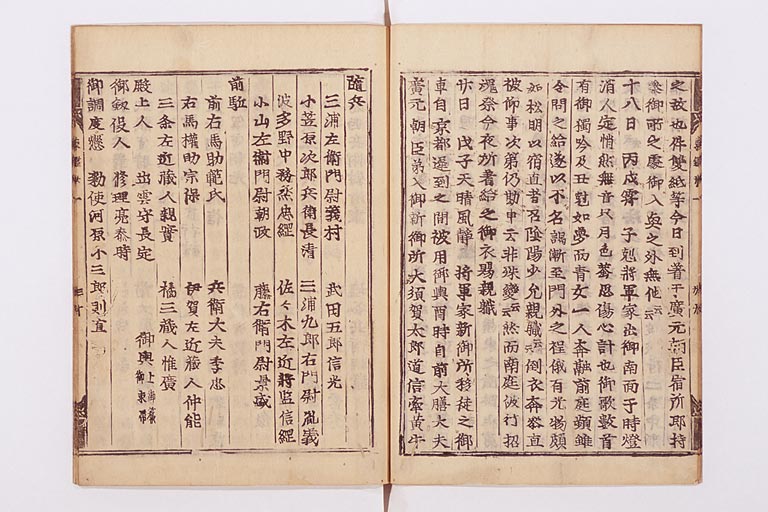 之故也件雙紙等今日到著于廣元朝臣宿所即持
參御所之處御入興之外無他云云
十八日 丙戌霽 子剋將軍家出御南面于時燈
消人定悄然無音只月色蛬思傷心計也御歌數首
有御獨吟及丑剋如夢而青女一人奔融前庭頻雖
令問之給遂以不名謁漸至門外之程俄有光物頗
如松明以宿直者召陰陽少允親職云云倒衣奔參直
被仰事次第仍勘申云非殊變云云然而南庭被行招
魂祭今夜所著給之御衣賜親職
廿日 戊子天晴風靜 將軍家新御所移徙之御
車自京都遲到之間被用御輿酉時自前大膳大夫
廣元朝臣第入御新御所大須賀太郎道信牽黃牛
隨兵
三浦左衛門尉義村 武田五郎信光
小笠原次郎兵衛長清 三浦九郎右門尉胤義
波多野中務烝忠經 佐々木左近將監信經
小山左衛門尉朝政 藤右衛門尉景盛
前駈
前右馬助範氏 兵衛大夫季忠
右馬權助宗保 伊賀左近藏人仲能
三条左近藏人親實 橘三藏人惟廣
殿上人 出雲守長定
御劔役人 修理亮泰時 御輿 上御簾 御束帶
御調度懸 勅使河原小三郎則直